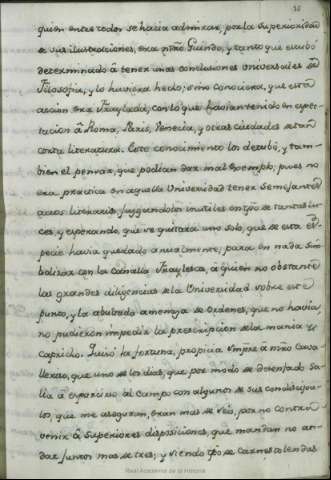 38
quien entre todos se hacia admirar, por la superioridad
de sus ilustraciones, era ntro Guindo, y tanto que estubo
determinado á tener unas conclusiones universales de
Filosofia, y lo huviera hecho, sino conociera, que esta
accion era Fraylada, con lo que hacian tenido en expec-
tacion á Roma, Paris, Venecia, y otras ciudades de tan
corta literatura. Este conocimiento los detubo, y tam-
bien el pensar, que podian dar mal exemplo, pues no
era practica en aquella Universidad tener semejantes
actos literarios, juzgandolos inutiles en tpo de tantas lu-
ces, y esperando, que se quitara uno solo, que de esta es-
pecie havia quedado anualmente, para en nada sim-
bolizar con la Canalla Fraylesca, á quien no obstante
las grandes diligencias de la Universidad sobre este
punto, y la abultada amenaza de ordenes, que no havia,
no pudieron impedir la prescripcion de la mania y
capricho. Quiso la fortuna, propicia smpre á ntro Cava-
llero, que uno de los dias, que por modo de desenfado sa-
lia á esparcirse al campo con algunos de sus condiscipu-
los, que me aseguran, eran mas de seis, por no contra-
venir á superiores disposiciones, que mandan no an-
dar juntos mas de tres; y siendo tpo de carnestolendas
Real Academia de la Historia